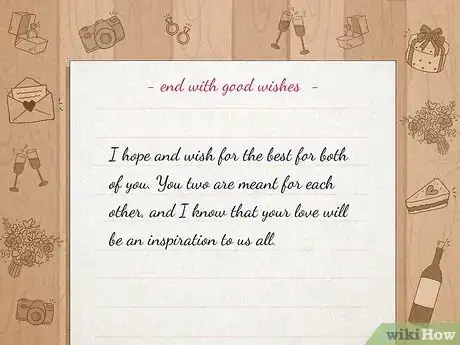 - end with good wishes -
I hope and wish for the best for both
of you. You two are meant for each
other, and I know that your love will
be an inspiration to us all.
wikiHow